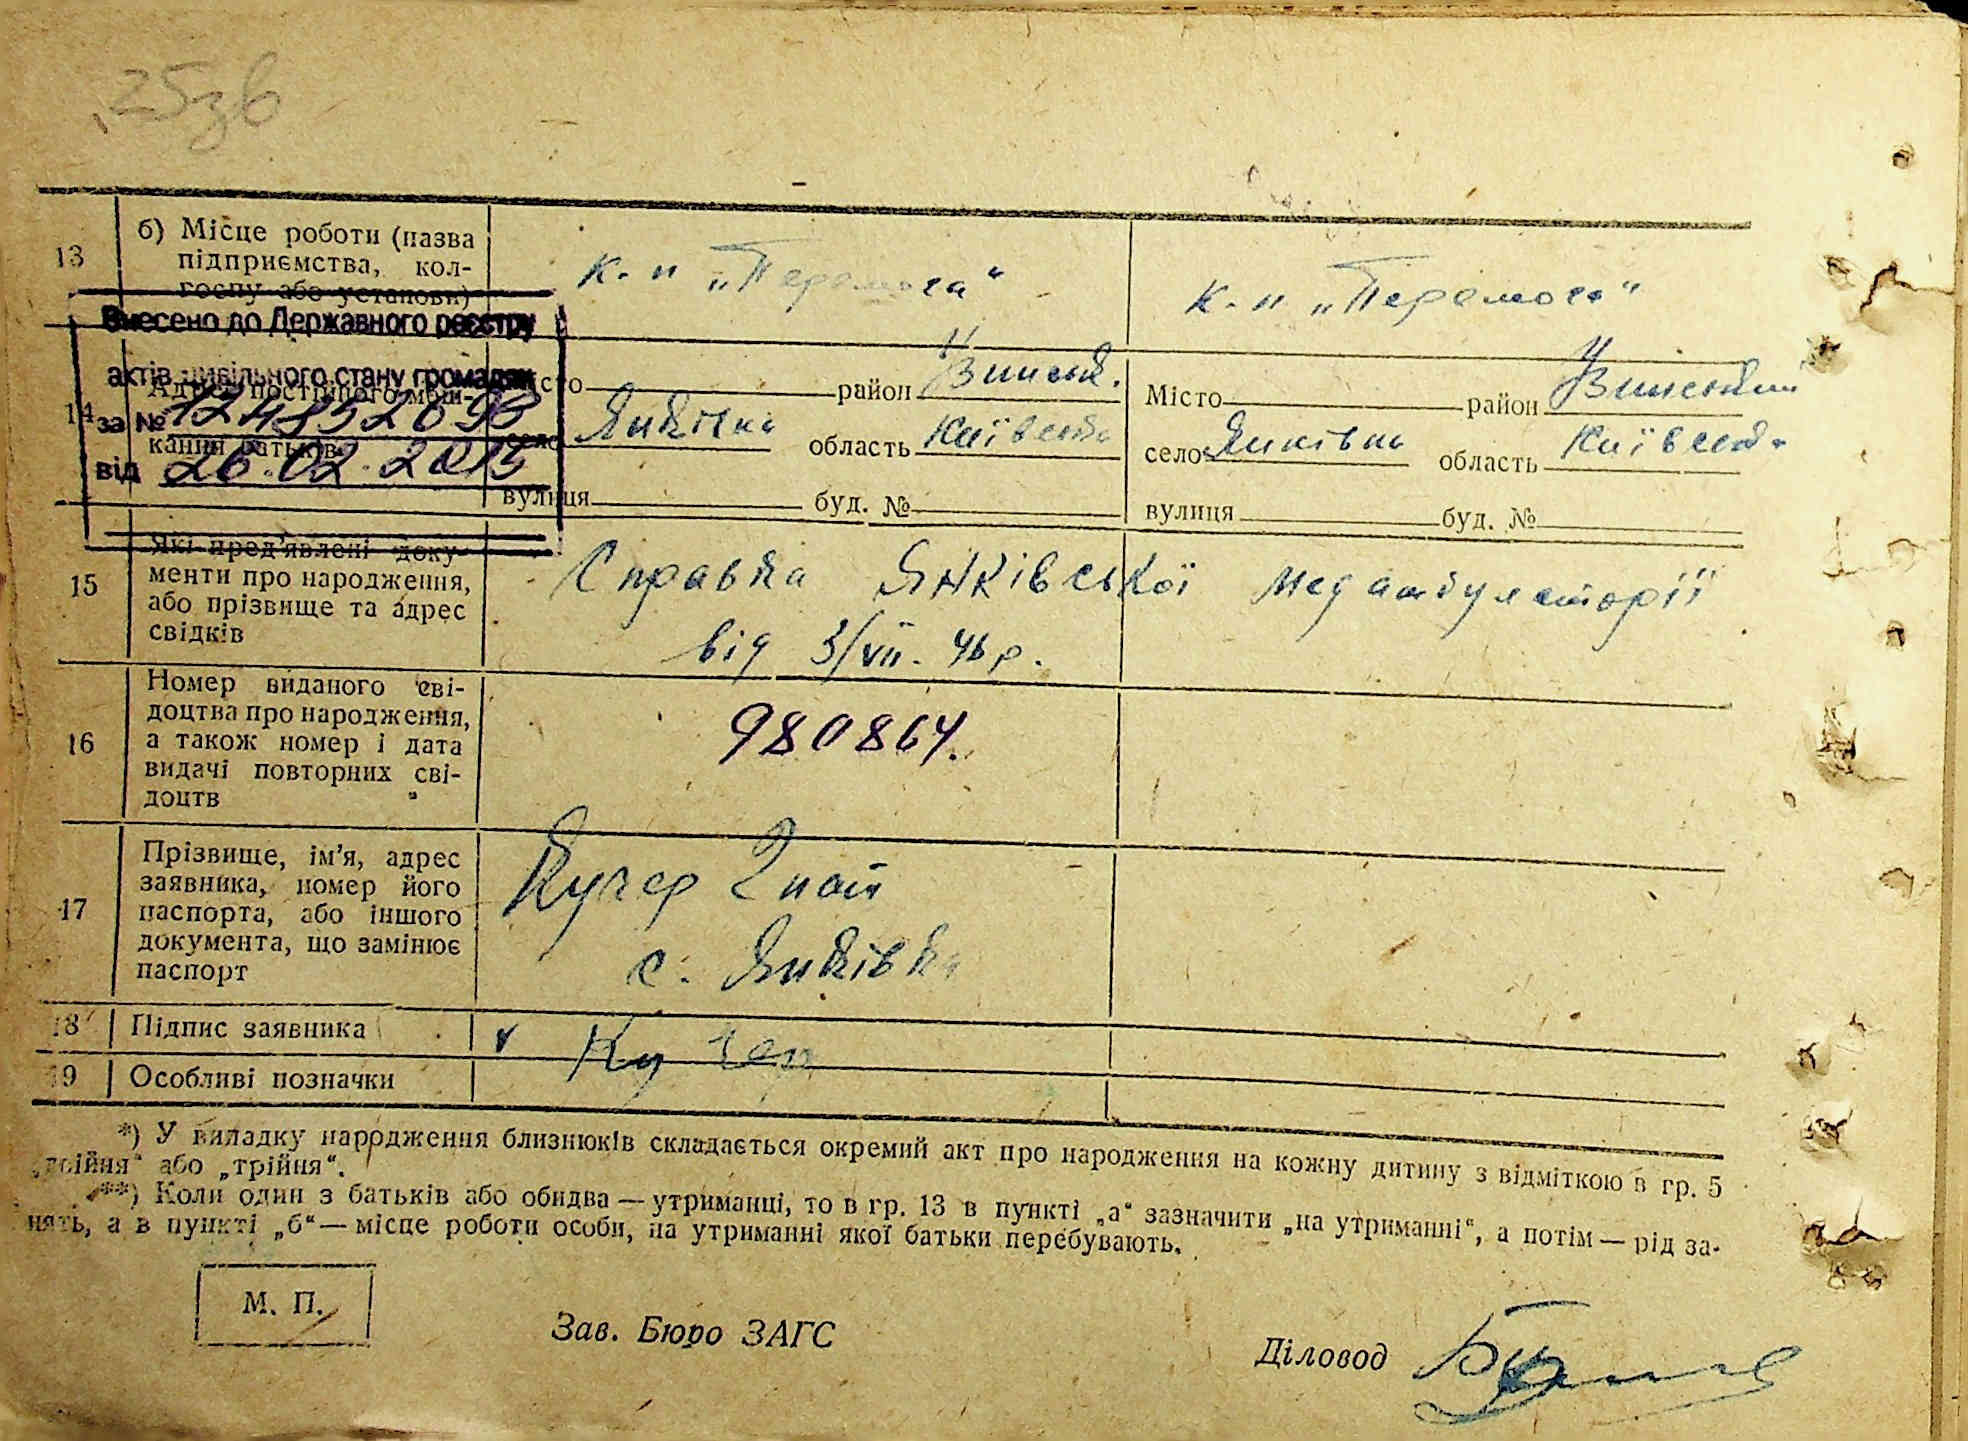 25зв
13 б) Місце роботи (назва підприємства, колгоспу або установи)
к-п „Перемога“
к-п „Перемога“
Внесено до Державного реєстру
актів цивільного стану громадян
за №
від 26.02.2015
14 Адрес постійного мешкання батьків
Місто район
село Янківка область Київськ
вулиця буд. №
Місто район
село Янківка область Київськ.
вулиця буд. №
15 Які пред'явлені документи про народження, або прізвище та адрес свідків
Справка Янківської медамбулаторії
від 3/VII. 46 р.
16 Номер виданого свідоцтва про народження, а також номер і дата видачі повторних свідоцтв
980864.
17 Прізвище, ім'я, адрес заявника, номер його паспорта, або іншого документа, що замінює паспорт
Кучер
с. Янківка
18 Підпис заявника
v Кучер
19 Особливі позначки
*) У випадку народження близнюків складається окремий акт про народження на кожну дитину з відміткою в гр. 5
„двійня“ або „трійня“.
**) Коли один з батьків або обидва — утриманці, то в гр. 13 в пункті „а“ зазначити „на утриманні“, а потім — рід за-
нять, а в пункті „б“ — місце роботи особи, на утриманні якої батьки перебувають.
М. П.
Зав. Бюро ЗАГС
Діловод